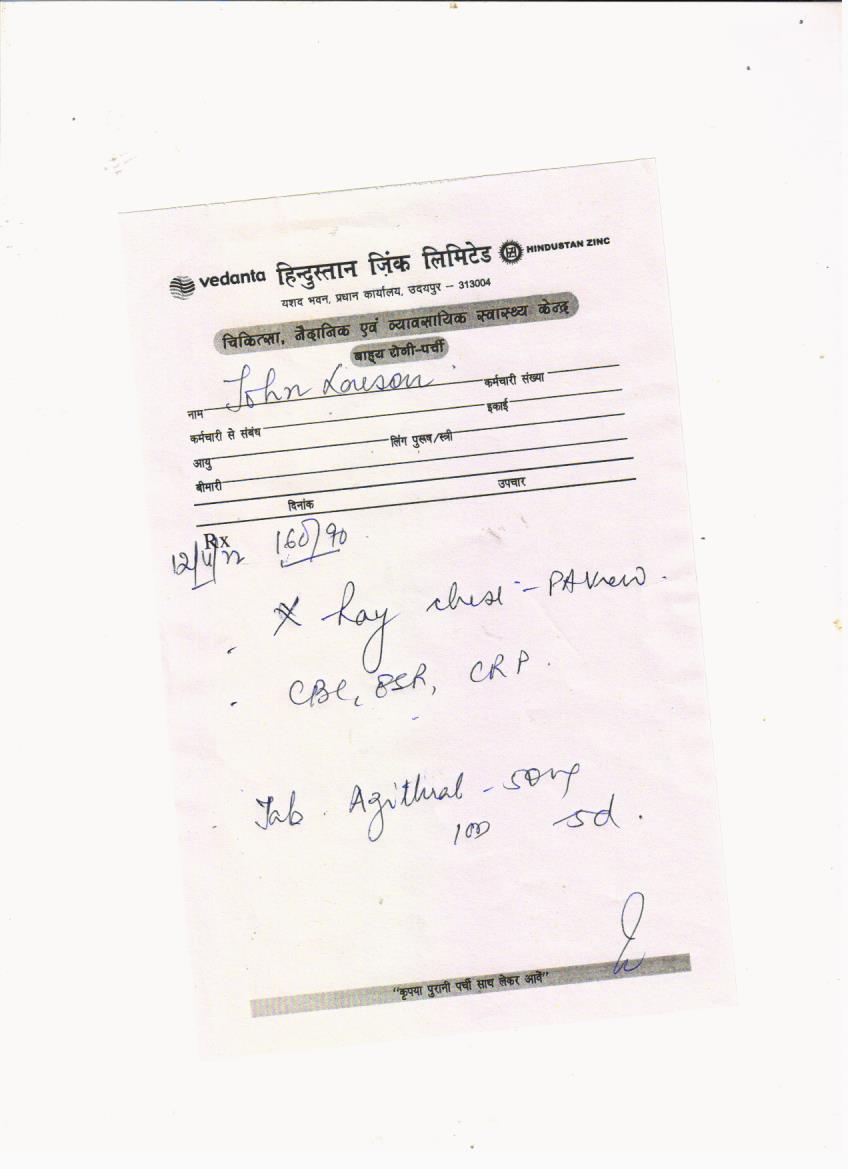 vedanta हिन्दुस्तान ज़िंक लिमिटेड HINDUSTAN ZINC
यशद भवन, प्रधान कार्यालय, उदयपुर – 313004
चिकित्सा, नैदानिक एवं व्यावसायिक स्वास्थ्य केन्द्र
बाह्य रोगी-पर्ची
नाम John कर्मचारी संख्या
कर्मचारी से संबंध इकाई
आयु लिंग पुरूष/स्त्री
बीमारी
दिनांक उपचार
Rx 160/90
X Ray chest - PA View.
CBC, ESR, CRP.
Tab. Azithral - 500mg
5d.
"कृपया पुरानी पर्ची साथ लेकर आवें"